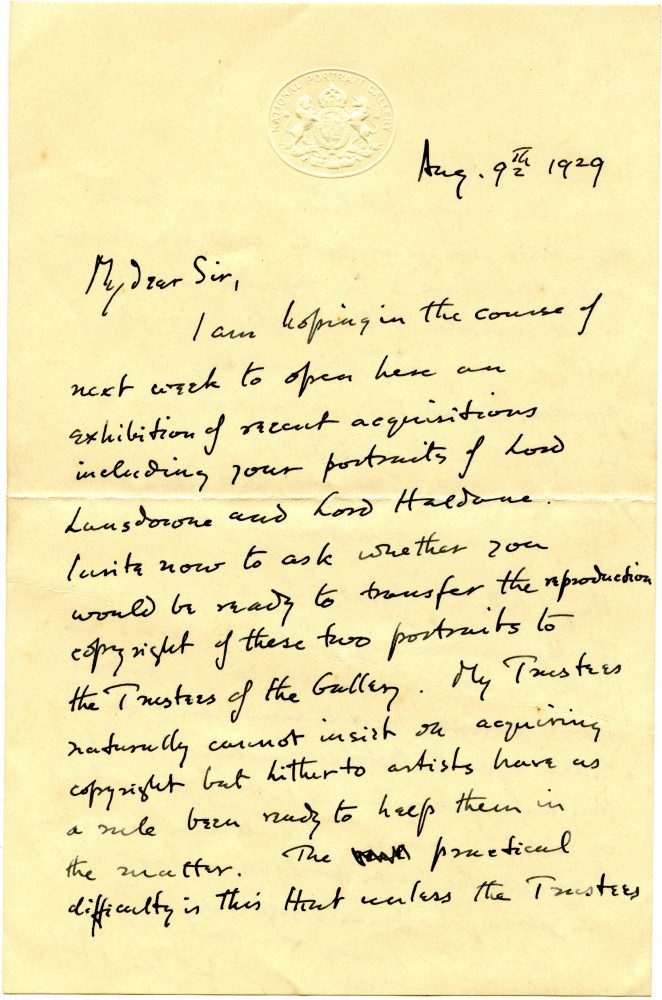 NATIONAL PORTRAIT GALLERY
Aug. 9th 1929
My dear Sir,
I am hoping in the course of
next week to open here an
exhibition of recent acquisitions
including your portraits of Lord
Lansdowne and Lord Haldane.
I write now to ask whether you
would be ready to transfer the reproduction
copyright of these two portraits to
the Trustees of the Gallery. My Trustees
naturally cannot insist on acquiring
copyright but hitherto artists have as
a rule been ready to help them in
the matter. The practical
difficulty is this that unless the Trustees